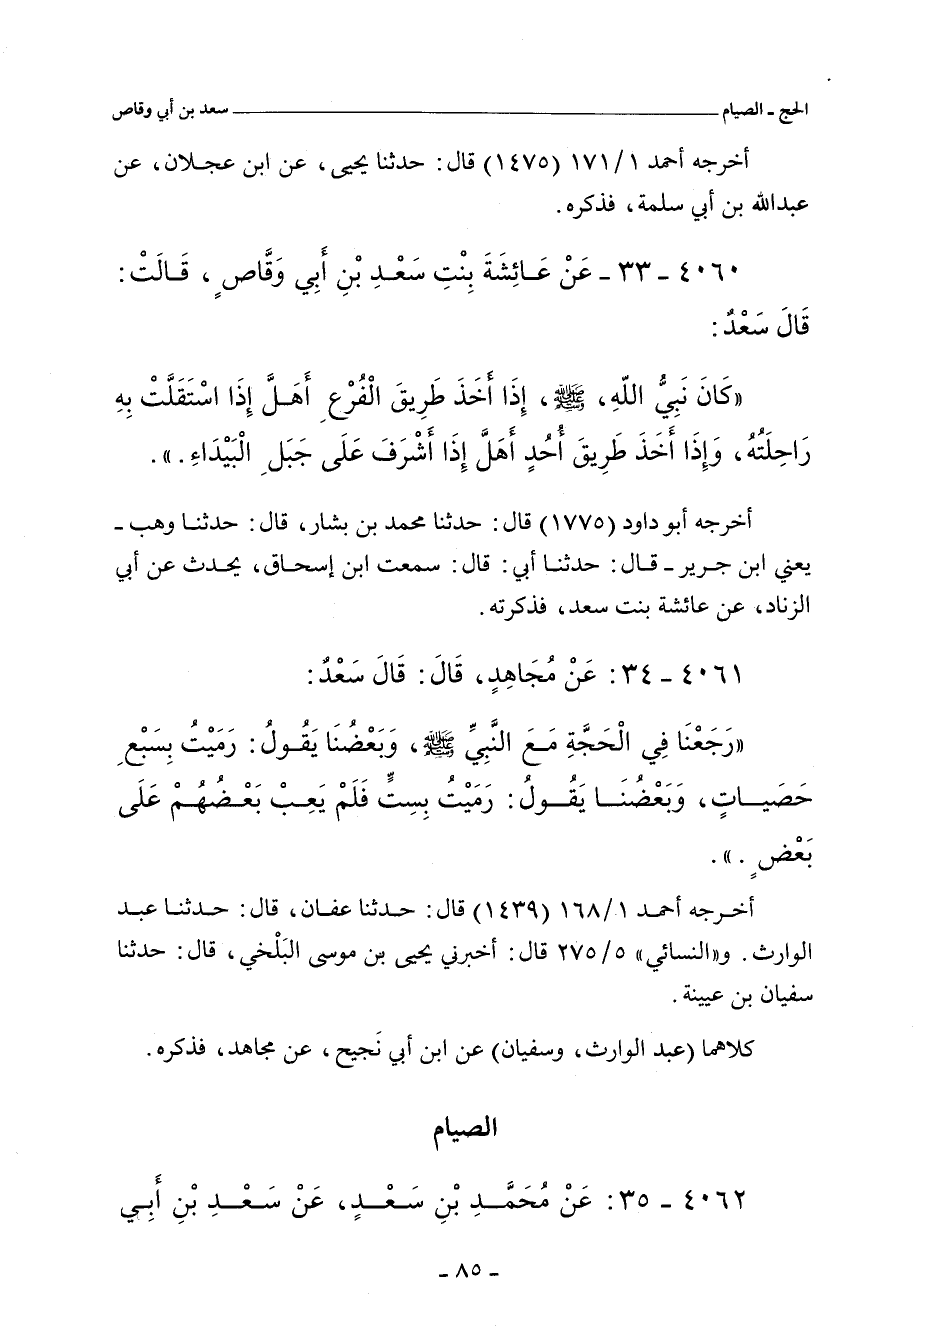 الحج ـ الصيام ــــــــــــــــــــ سعد بن أبي وقاص
أخرجه أحمد ١/ ١٧١ (١٤٧٥) قال: حدثنا يحيى، عن ابن عجلان، عن
عبدالله بن أبي سلمة، فذكره.
٤٠٦٠ ـ ٣٣ ـ عَنْ عَائِشَةَ بِنْتِ سَعْدِ بْنِ أَبِي وَقَّاصٍ، قَالَتْ:
قَالَ سَعْدٌ:
«كَانَ نَبِيُّ اللَّهِ، ﷺ، إِذَا أَخَذَ طَرِيقَ الْفُرْعِ أَهَلَّ إِذَا اسْتَقَلَّتْ بِهِ
رَاحِلَتُهُ، وَإِذَا أَخَذَ طَرِيقَ أُحُدٍ أَهَلَّ إِذَا أَشْرَفَ عَلَى جَبَلِ الْبَيْدَاءِ.».
أخرجه أبو داود (١٧٧٥) قال: حدثنا محمد بن بشار، قال: حدثنا وهب ـ
يعني ابن جرير ـ قال: حدثنا أبي: قال: سمعت ابن إسحاق، يحدث عن أبي
الزناد، عن عائشة بنت سعد، فذكرته.
٤٠٦١ ـ ٣٤: عَنْ مُجَاهِدٍ، قَالَ: قَالَ سَعْدٌ:
«رَجَعْنَا فِي الْحَجَّةِ مَعَ النَّبِيِّ ﷺ، وَبَعْضُنَا يَقُولُ: رَمَيْتُ بِسَبْعِ
حَصَيَاتٍ، وَبَعْضُنَا يَقُولُ: رَمَيْتُ بِسِتٍّ فَلَمْ يَعِبْ بَعْضُهُمْ عَلَى
بَعْضٍ.».
أخرجه أحمد ١/ ١٦٨ (١٤٣٩) قال: حدثنا عفان، قال: حدثنا عبد
الوارث. و«النسائي» ٥/ ٢٧٥ قال: أخبرني يحيى بن موسى البَلْخي، قال: حدثنا
سفيان بن عيينة.
كلاهما (عبد الوارث، وسفيان) عن ابن أبي نَجيح، عن مجاهد، فذكره.
الصيام
٤٠٦٢ ـ ٣٥: عَنْ مُحَمَّدِ بْنِ سَعْدٍ، عَنْ سَعْدِ بْنِ أَبِي
ـ ٨٥ ـ